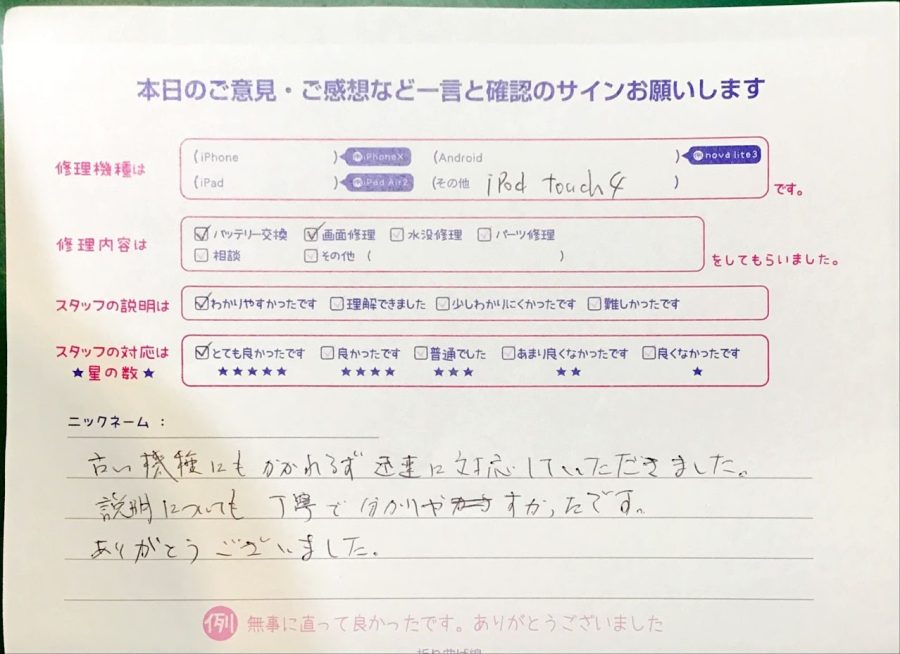 本日のご意見・ご感想など一言と確認のサインお願いします
修理機種は
(iPhone ) 例iPhoneX (Android ) 例nova lite3
(iPad ) 例iPad Air2 (その他 iPod touch4 ) です。
修理内容は
バッテリー交換 画面修理 水没修理 パーツ修理
相談 その他 ( ) をしてもらいました。
スタッフの説明は わかりやすかったです 理解できました 少しわかりにくかったです 難しかったです
スタッフの対応は とても良かったです 良かったです 普通でした あまり良くなかったです 良くなかったです
★星の数★ ★★★★★ ★★★★ ★★★ ★★ ★
ニックネーム：
古い機種にもかかわれるず迅速に対応していただきました。
説明についても 丁寧で分かりやすかったです。
ありがとうございました。
例 無事に直って良かったです。ありがとうございました